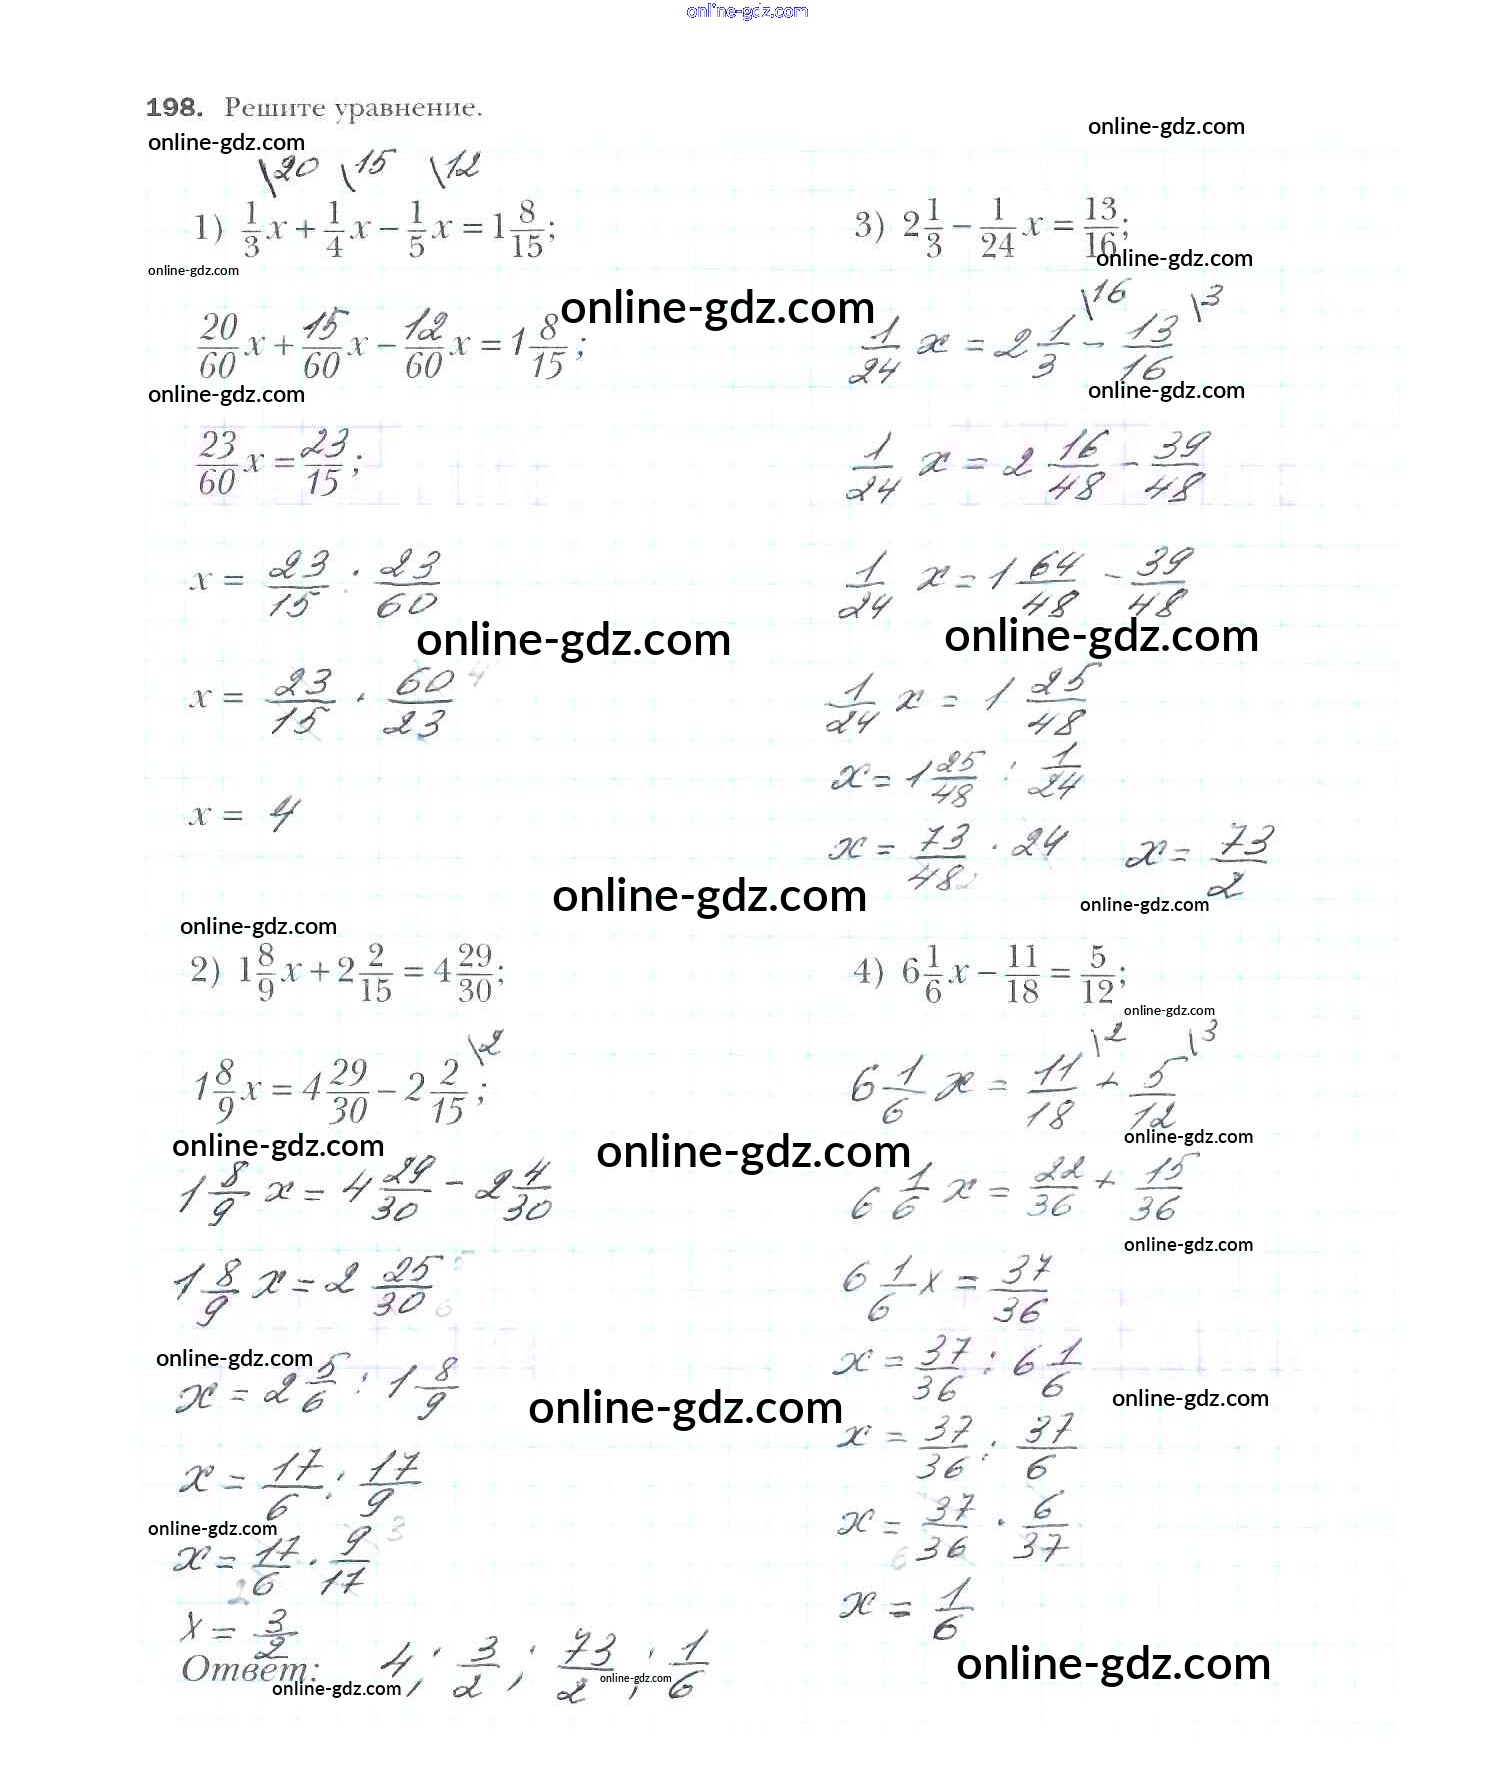 online-gdz.com
198. Решите уравнение.
online-gdz.com
online-gdz.com
\20 \15 \12
1) 1/3 x + 1/4 x − 1/5 x = 1 8/15;
online-gdz.com
20/60 x + 15/60 x − 12/60 x = 1 8/15;
online-gdz.com
online-gdz.com
23/60 x = 23/15;
x = 23/15 : 23/60
online-gdz.com
x = 23/15 · 60/23 4
x = 4
3) 2 1/3 − 1/24 x = 13/16;
online-gdz.com
\16 \3
1/24 x = 2 1/3 − 13/16
online-gdz.com
1/24 x = 2 16/48 − 39/48
1/24 x = 1 64/48 − 39/48
online-gdz.com
1/24 x = 1 25/48
x = 1 25/48 : 1/24
x = 73/48 · 24 x = 73/2
2
online-gdz.com
online-gdz.com
online-gdz.com
2) 1 8/9 x + 2 2/15 = 4 29/30;
\2
1 8/9 x = 4 29/30 − 2 2/15;
online-gdz.com
online-gdz.com
1 8/9 x = 4 29/30 − 2 4/30
1 8/9 x = 2 25/30 5 6
online-gdz.com
x = 2 5/6 : 1 8/9
online-gdz.com
x = 17/6 : 17/9
online-gdz.com
x = 17/6 · 9/17 3
2
x = 3/2
4) 6 1/6 x − 11/18 = 5/12;
online-gdz.com
\2 \3
6 1/6 x = 11/18 + 5/12
online-gdz.com
6 1/6 x = 22/36 + 15/36
online-gdz.com
6 1/6 x = 37/36
x = 37/36 : 6 1/6
online-gdz.com
x = 37/36 : 37/6
x = 37/36 · 6/37
6
x = 1/6
online-gdz.com
Ответ: 4; 3/2; 73/2; 1/6
online-gdz.com
online-gdz.com